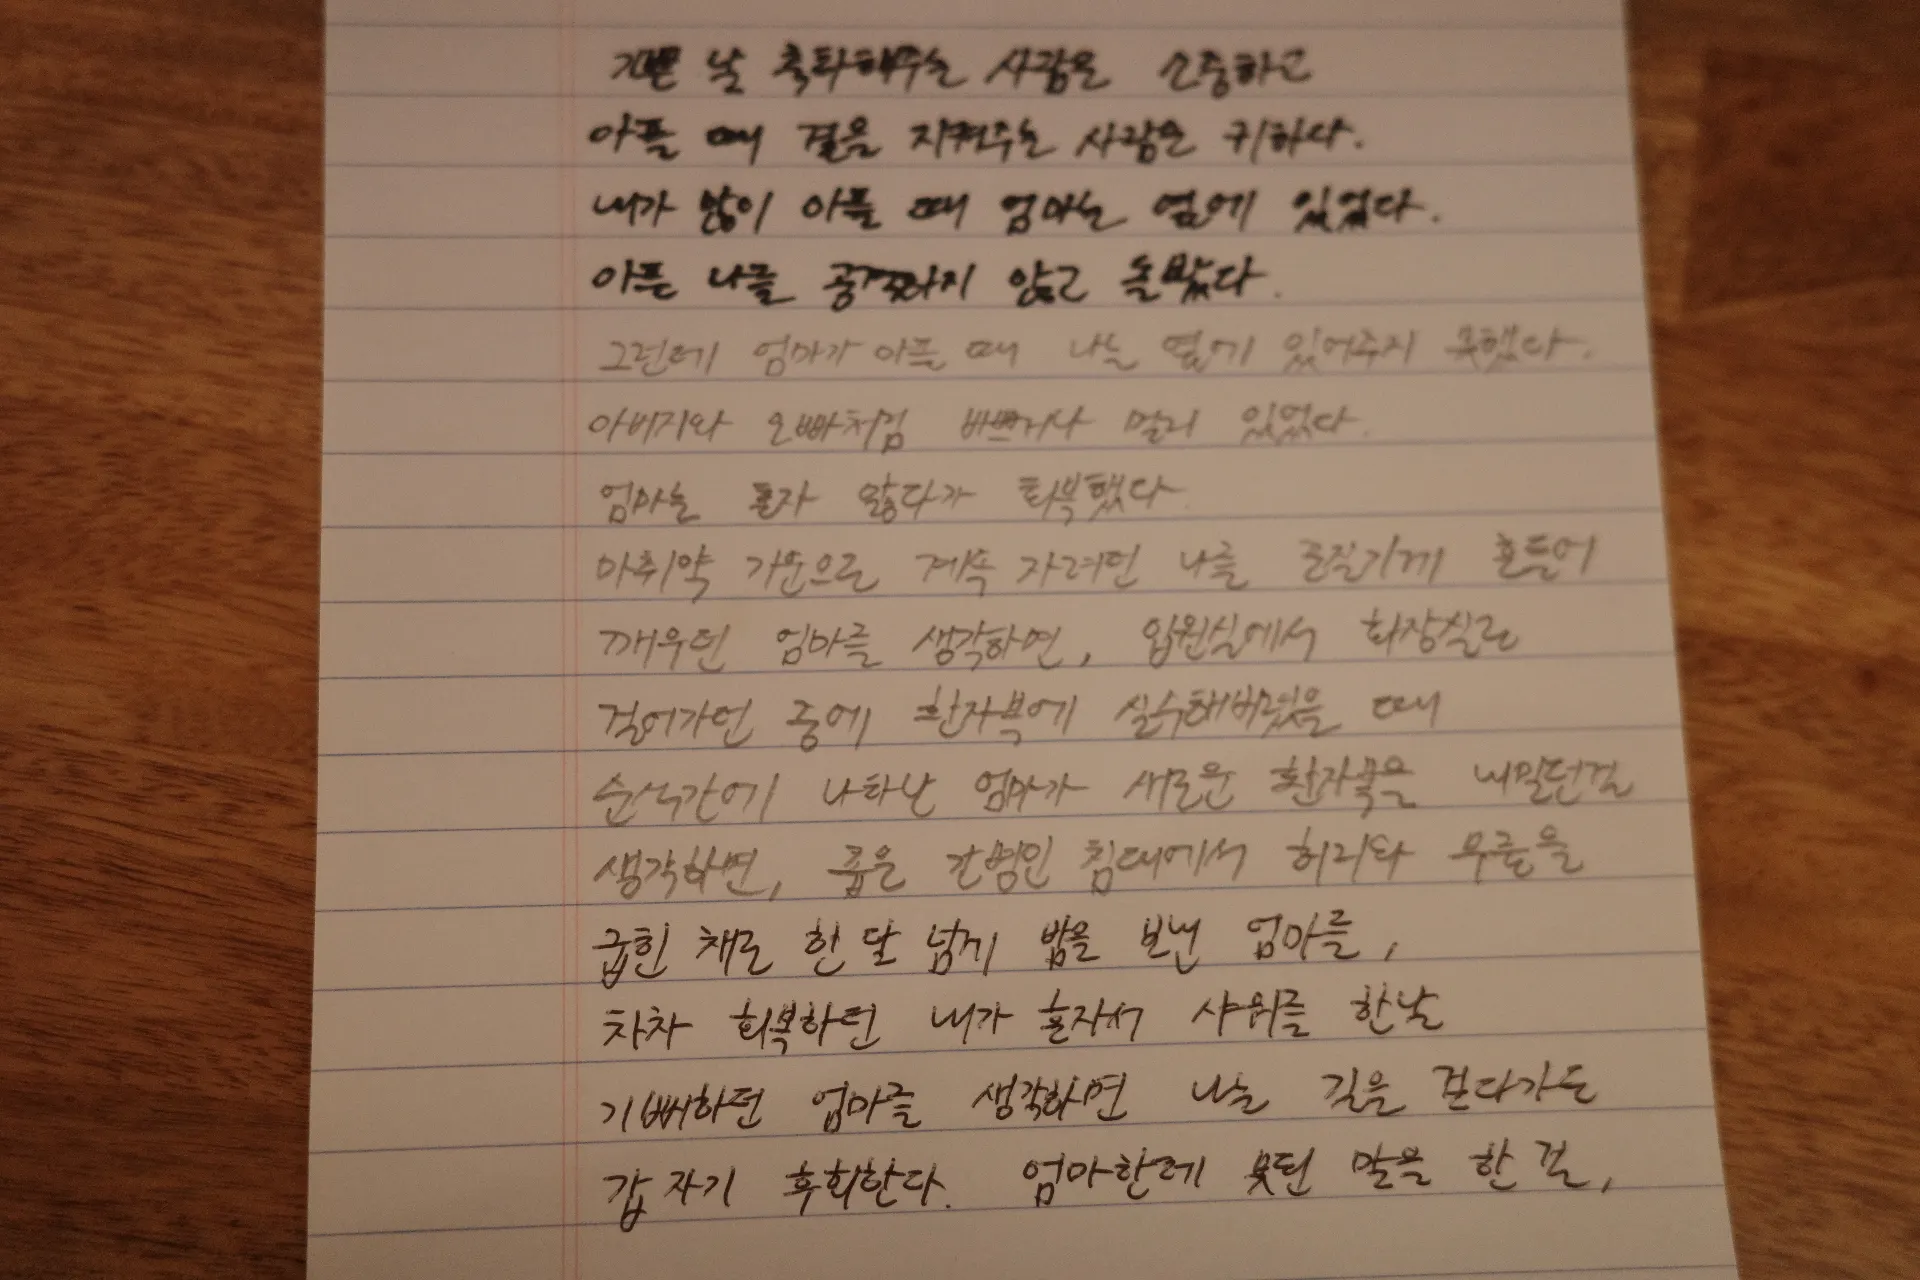 기쁜 날 축하해주는 사람은 소중하고
아플 때 곁을 지켜주는 사람은 귀하다.
내가 많이 아플 때 엄마는 옆에 있었다.
아픈 나를 공격하지 않고 돌봤다.
그런데 엄마가 아플 때 나는 옆에 있어주지 못했다.
아버지와 오빠처럼 바쁘거나 멀리 있었다.
엄마는 혼자 앓다가 회복했다.
마취약 기운으로 계속 자려던 나를 끈질기게 흔들어
깨우던 엄마를 생각하면, 입원실에서 화장실로
걸어가던 중에 환자복에 실수해버렸을 때
순식간에 나타난 엄마가 새로운 환자복을 내밀던걸
생각하면, 좁은 간병인 침대에서 허리와 무릎을
굽힌 채로 한 달 넘게 밤을 보낸 엄마를,
차차 회복하던 내가 혼자서 샤워를 한날
기뻐하던 엄마를 생각하면 나는 길을 걷다가도
갑자기 후회한다. 엄마한테 못된 말을 한 걸,